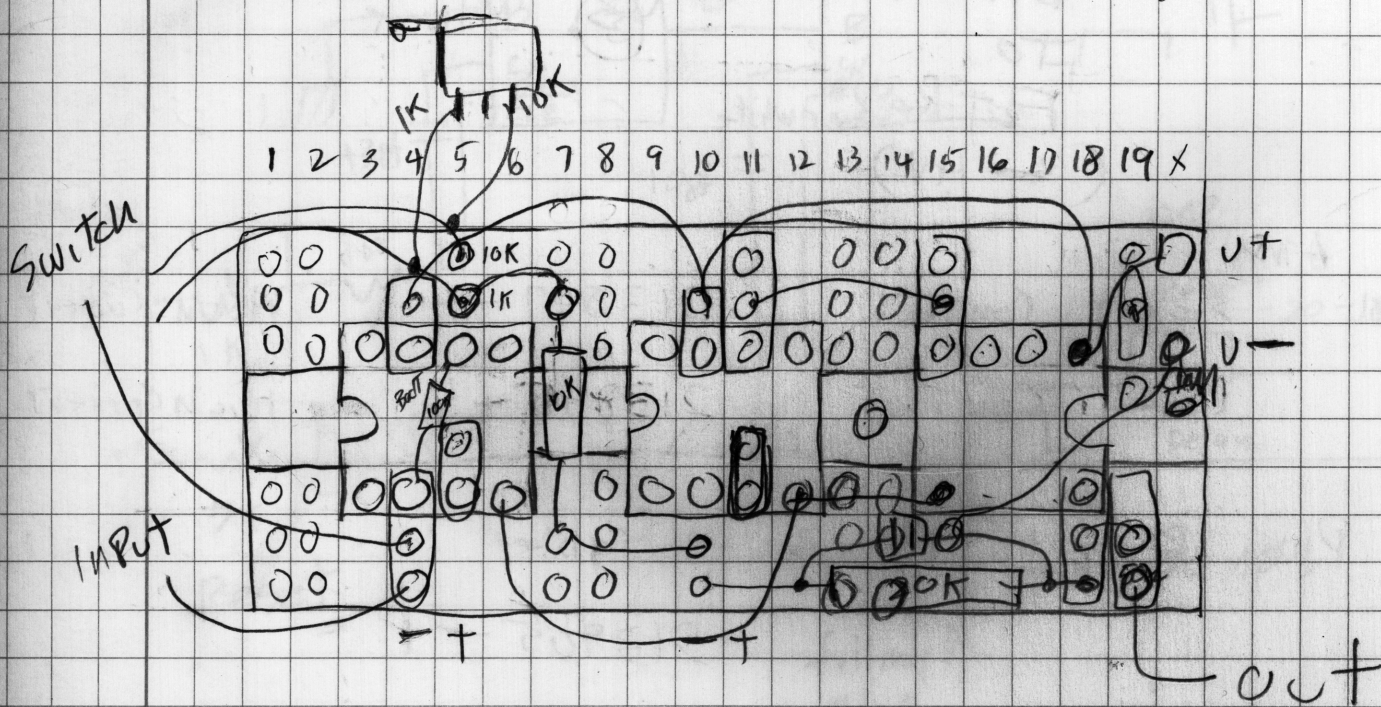 1K 10K
1 2 3 4 5 6 7 8 9 10 11 12 13 14 15 16 17 18 19 X
Switch
10K
V+
1K
V-
100K
10K
INPUT
10K
- + - +
OUT